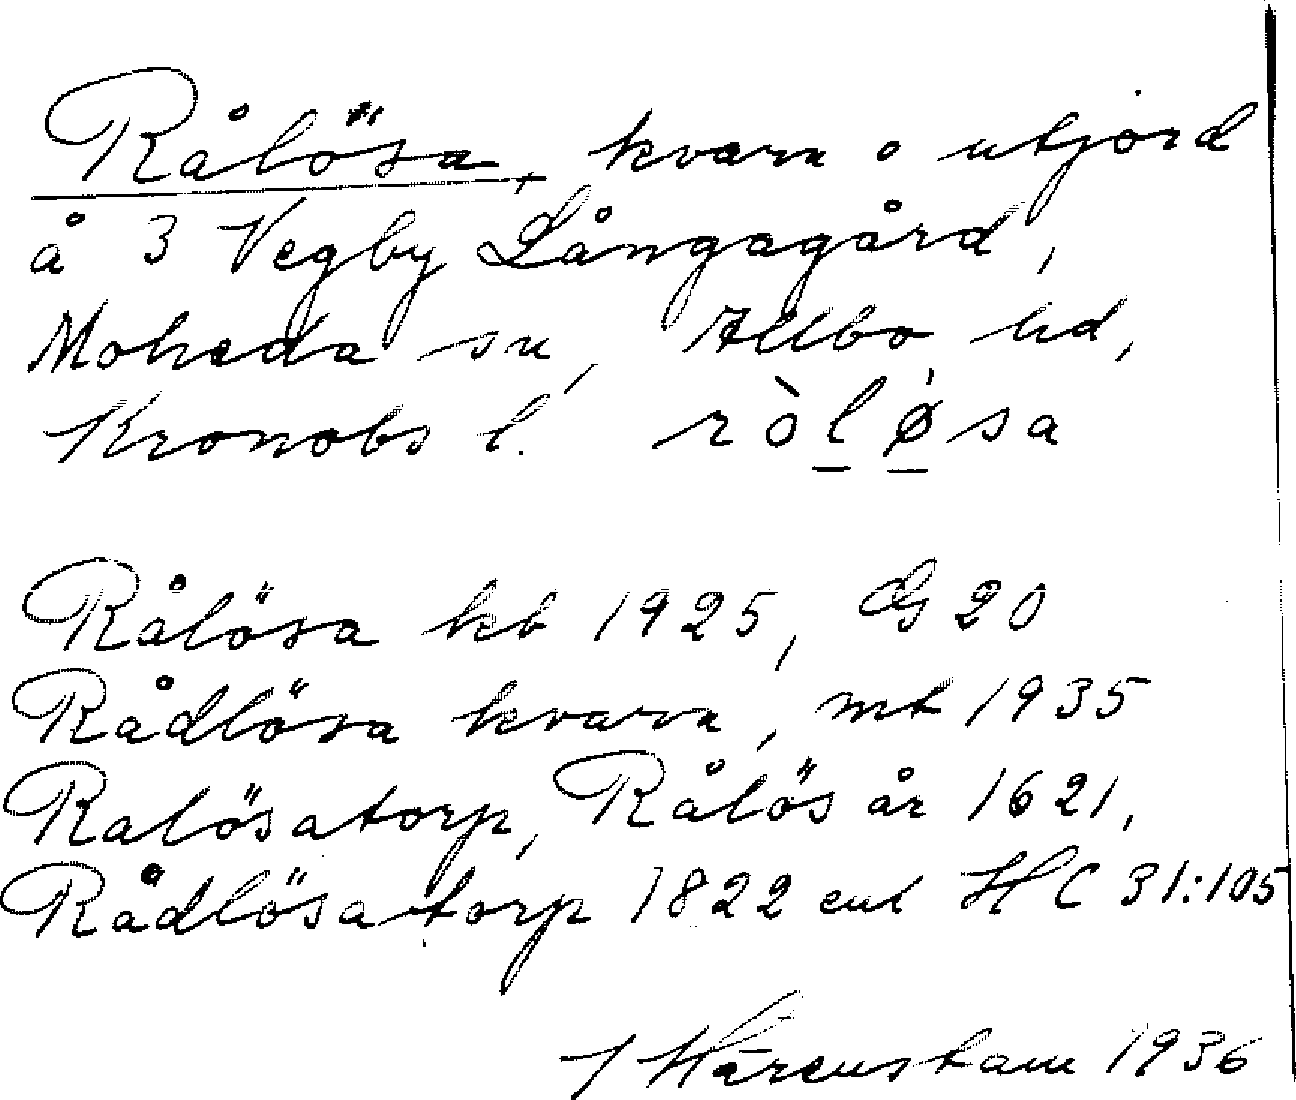 Rålösa, kvarn o utjord
å 3 Vegby Långagård,
Moheda sn, Allbo hd,
Kronobs l. ròl̲ø̲̍sa
Rålösa kb 1925, G 20
Rådlösa kvarn, mt 1935
Ralösatorp, Rålös år 1621,
Rådlösatorp 1822 enl HC 31:105
J Hårenstam 1936